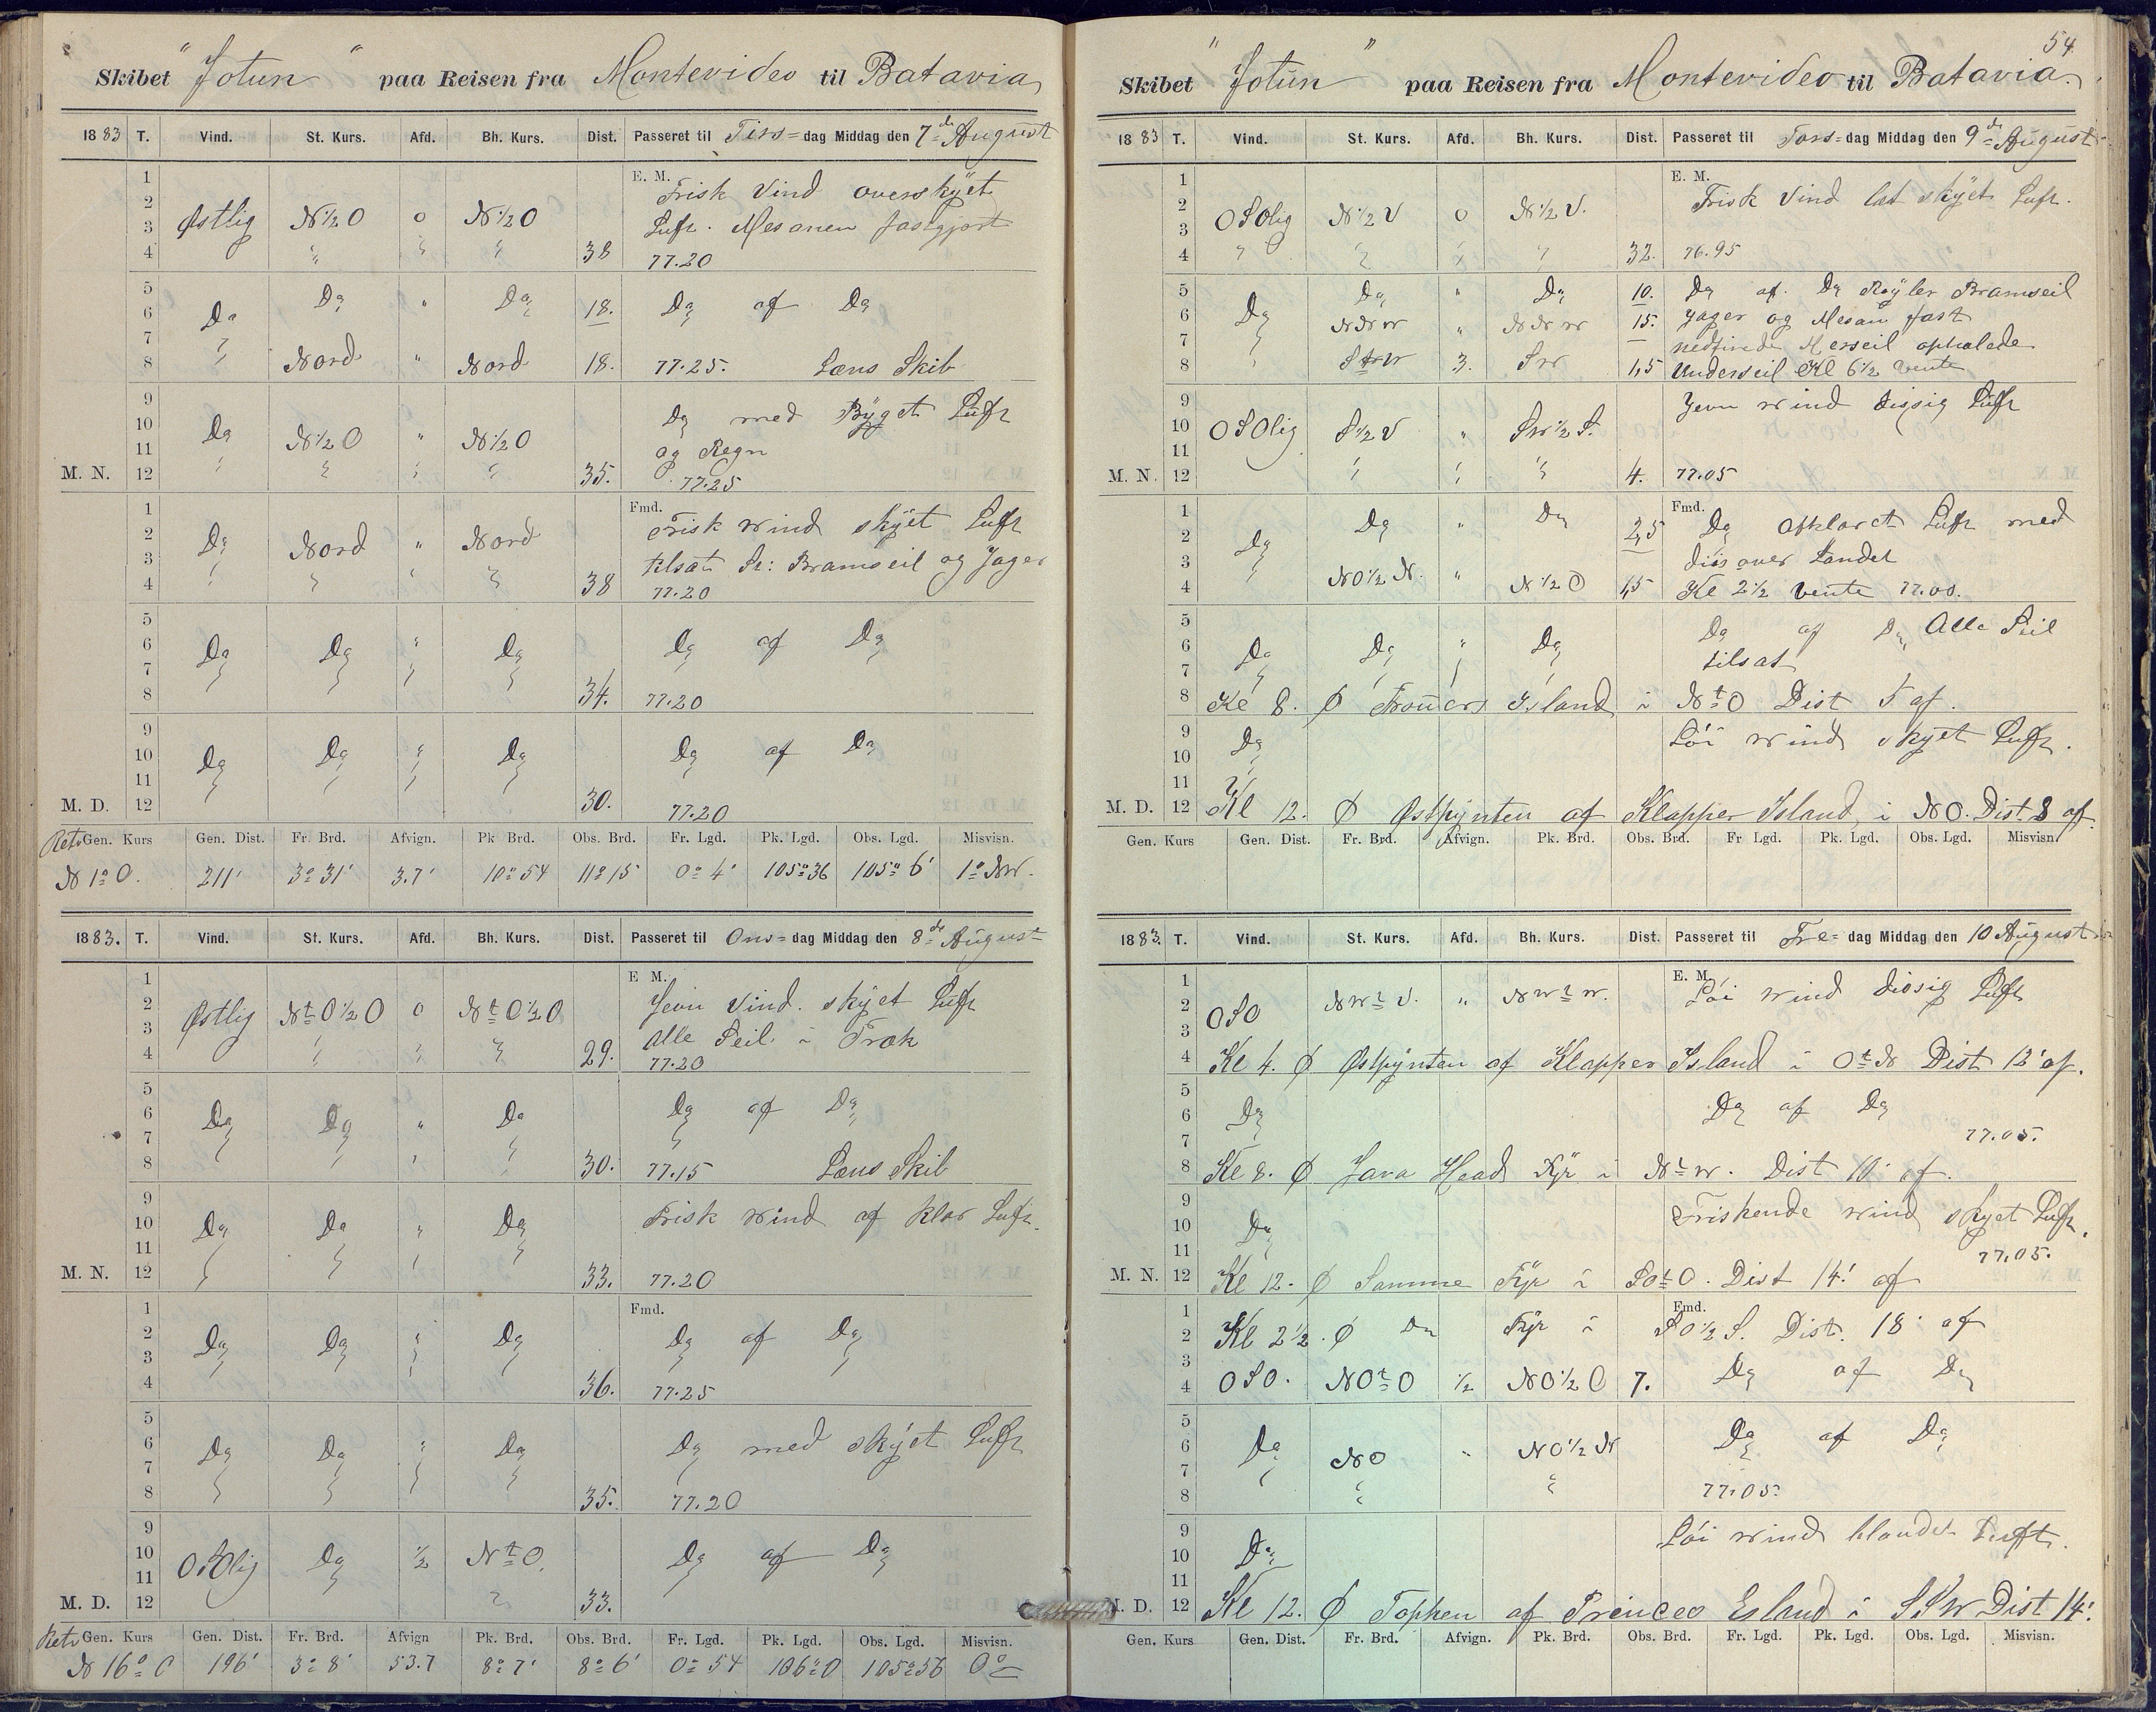 Skibet "Jotun" paa Reisen fra Montevideo til Batavia
1883 T. Vind. St. Kurs. Afd. Bh. Kurs. Dist. Passeret til Tirs=dag Middag den 7de August
1
2
3
4
E. M.
Frisk Vind overskyet
Østlig N½O 0 N½O Luft. Mesanen fastgjort
38 77.20
5
6
7
8
Do Do " Do 18. Do af Do
Nord " Nord 18. 77.25. Læns Skib
9
10
11
M. N. 12
Do N½O " N½O Do med Byget Luft
og Regn
35. 77.25
1
2
3
4
Fmd.
Do Nord " Nord Frisk Wind skyet Luft
tilsat St: Bramseil og Jager
38 77.20
5
6
7
8
Do Do " Do Do af Do
34. 77.20
9
10
11
M. D. 12
Do Do Do Do af Do
30. 77.20
Retv Gen. Kurs Gen. Dist. Fr. Brd. Afvign. Pk Brd. Obs. Brd. Fr. Lgd. Pk. Lgd. Obs. Lgd. Misvisn.
N 1° O. 211' 3° 31' 3.7' 10° 54 11° 15 0° 4' 105° 36 105° 6' 1° NW.
1883. T. Vind. St. Kurs. Afd. Bh. Kurs. Dist. Passeret til Ons=dag Middag den 8de August
1
2
3
4
E M.
Østlig NtO½O 0 NtO½O Jevn Vind. skyet Luft
Alle Seil i Træk
29. 77.20
5
6
7
8
Do Do " Do Do af Do
30. 77.15 Læns Skib
9
10
11
M. N. 12
Do Do " Do Frisk Wind af klar Luft.
33. 77.20
1
2
3
4
Fmd.
Do Do Do Do af Do
36. 77.25
5
6
7
8
Do Do Do Do med skyet Luft
35. 77.20
9
10
11
M. D. 12
OSOlig Do ½ NtO. Do af Do
33.
Retv Gen. Kurs Gen. Dist. Fr. Brd. Afvign Pk. Brd. Obs. Brd. Fr. Lgd. Pk. Lgd. Obs. Lgd. Misvisn.
N 16° O 196' 3° 8' 53.7 8° 7' 8° 6' 0° 54 106° 0 105° 56 0°
54
Skibet "Jotun" paa Reisen fra Montevideo til Batavia.
1883 T. Vind. St. Kurs. Afd. Bh. Kurs. Dist. Passeret til Tors=dag Middag den 9de August
1
2
3
4
E. M.
OSOlig N½V 0 N½V. Frisk Vind let skyet Luft.
32. 76.95
5
6
7
8
Do Do " Do 10. Do af Do Røyler Bramseil
NNW " NNW 15. Jager og Mesan fast
Merseil ophalede
3. SW 1,5 Underseil Kl 6½ vente
9
10
11
M. N. 12
Jevn Wind disig Luft
OSOlig S½V " SW½S.
4. 77.05
1
2
3
4
Fmd.
Do Do " Do 2,5 Do Opklaret Luft med
diis over Landet
NO½N. " N½O 1,5 Kl 2½ vente 77.00.
5
6
7
8
Do Do " Do Do af Do Alle Seil
tilsat
Kl 8. Ø Island i NtO Dist 5 af.
9
10
11
M. D. 12
Do Løi Wind skyet Luft.
Kl 12. Ø Østpynten af Klapper Island i NO. Dist 8 af.
Gen. Kurs Gen. Dist. Fr. Brd. Afvign. Pk. Brd. Obs. Brd. Fr Lgd. Pk. Lgd. Obs. Lgd. Misvisn.
1883. T. Vind. St. Kurs. Afd. Bh. Kurs. Dist. Passeret til Fre=dag Middag den 10 August
1
2
3
4
E. M.
OSO NWtV. " NWtW. Løi Wind diosig Luft
Kl 4. Ø Østpynten af Klapper Island i OtN Dist 12' af.
5
6
7
8
Do Do af Do
77.05.
Kl 8. Ø Java Head Fyr i NtW. Dist 10' af.
9
10
11
M. N. 12
Do Friskende Wind skyet Luft.
77.05.
Kl 12. Ø Samme Fyr i SOtO. Dist 14' af
1
2
3
4
Fmd.
Kl 2½. Ø Do Fyr i SO½S. Dist. 18' af
OSO. NOtO ½ NO½O 7. Do af Do
5
6
7
8
Do NO " NO½N Do af Do
77.05.
9
10
11
M. D. 12
Do Løi Wind blandet Luft.
Kl 12. Ø Toppen af Princes Esland i SSW Dist 14'.
Gen. Kurs Gen. Dist. Fr. Brd. Afvign. Pk. Brd. Obs. Brd. Fr. Lgd. Pk. Lgd. Obs. Lgd. Misvisn.